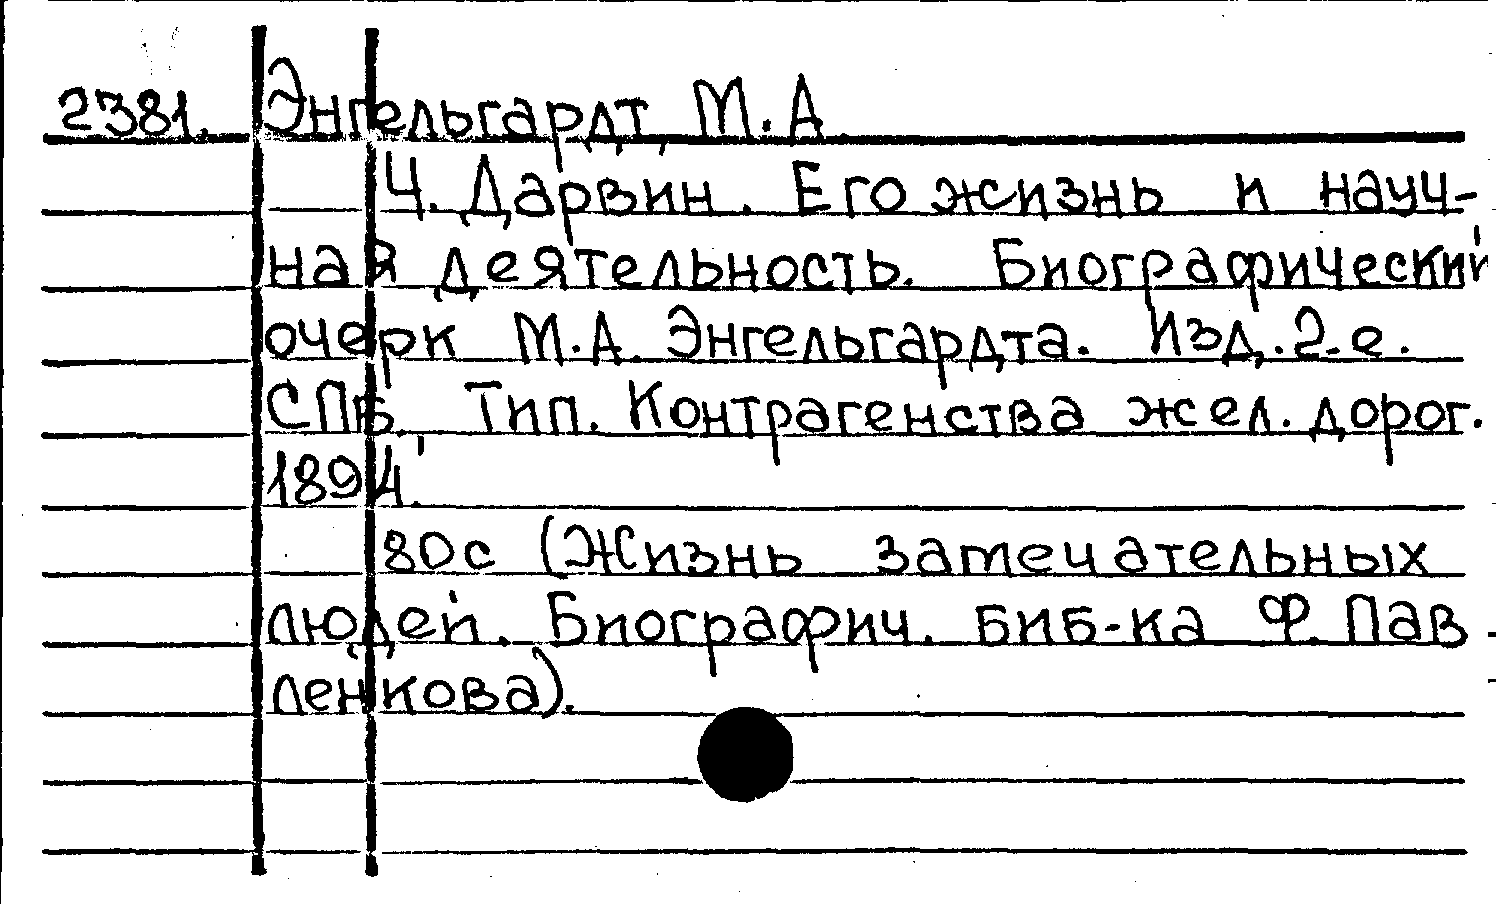 2381. Энгельгардт, М.А.
Ч. Дарвин. Его жизнь и науч-
ная деятельность. Биографический
очерк М.А. Энгельгардта. Изд. 2-е.
СПб. Тип. Контрагенства жел. дорог.
1894.
80с (Жизнь замечательных
людей. Биографич. биб-ка Ф. Пав
ленкова).